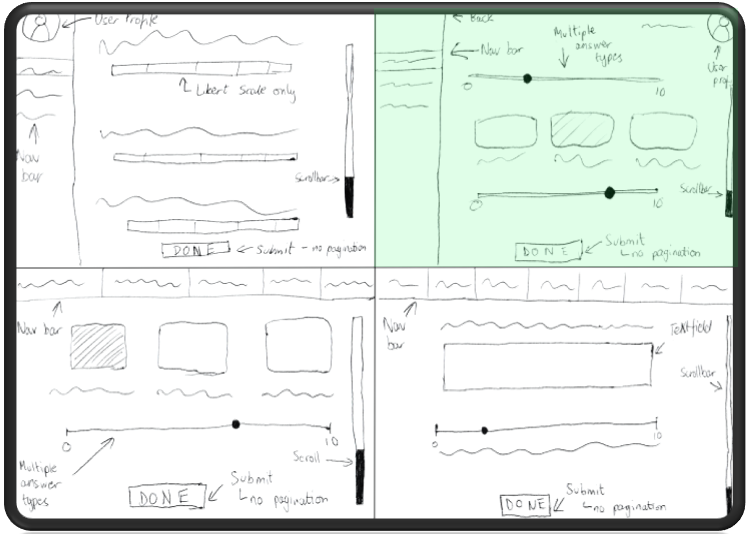 User Profile
Likert Scale only
Nav
bar
Scrollbar
DONE
Submit - no pagination
Back
Nav bar
Multiple
answer
types
User
prof
0
10
Scrollbar
0
10
DONE
Submit
no pagination
Nav bar
0
10
Multiple
answer
types
Scroll
DONE
Submit
no pagination
Nav
bar
Textfield
Scrollbar
0
10
DONE
Submit
no pagination